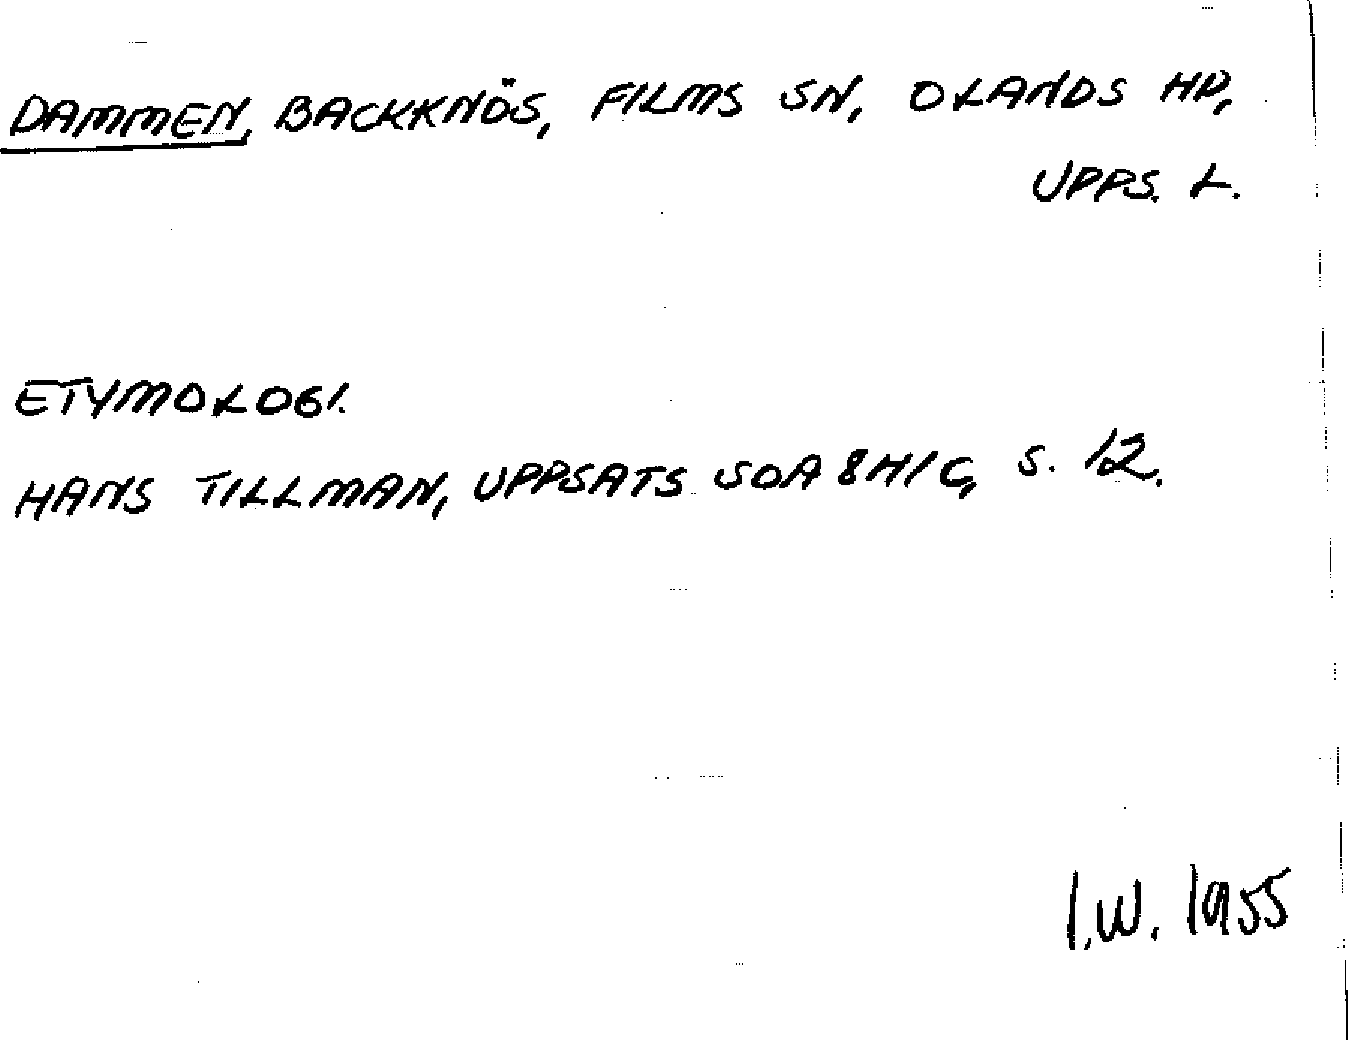 DAMMEN, BACKKNÖS, FILMS SN, OLANDS HD,
UPPS. L.
ETYMOLOGI.
HANS TILLMAN, UPPSATS SOA 8H/C, S. 12.
I.W. 1955